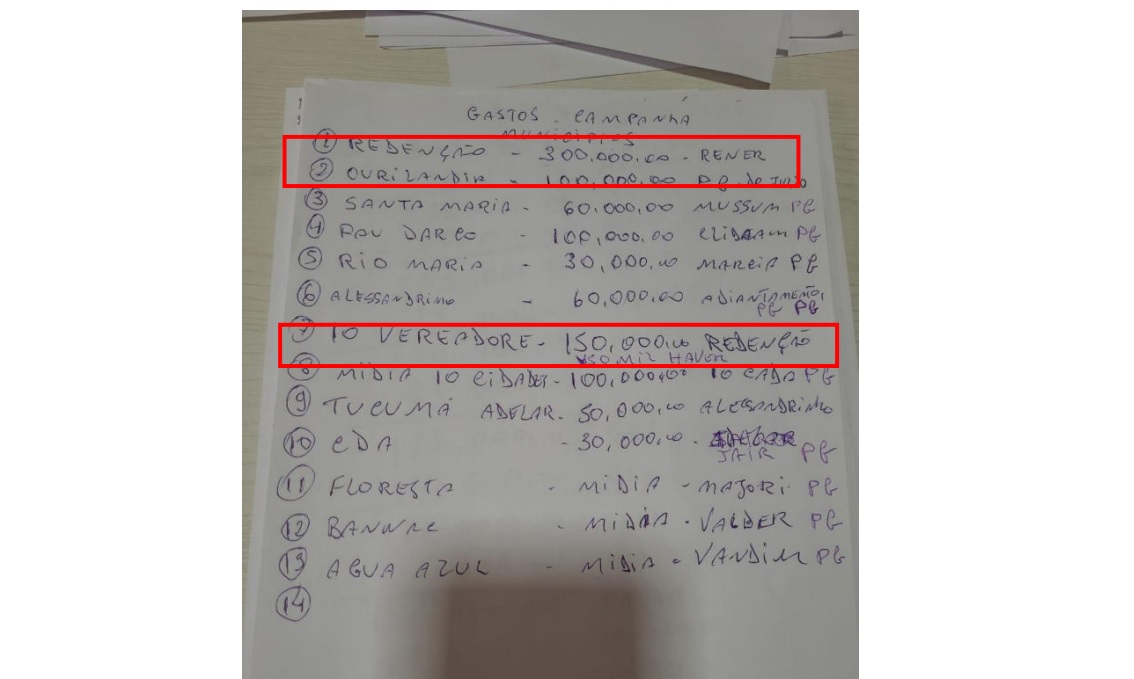 GASTOS . CAMPANHA
MUNICIPIOS
1 REDENÇÃO - 300,000.00 - RENER
2 OURILANDIA - 100,000,00 PG. DO JULIO
3 SANTA MARIA - 60.000,00 MUSSUM PG
4 PAU DARCO - 100,000.00 ELIDAAM PG
5 RIO MARIA - 30,000,00 MARCIA PG
6 ALESSANDRINHO - 60,000,00 ADIANTAMENTO,
PG PG
7 10 VEREADORE - 150,000,00 REDENÇÃO
50 MIL HAVER
8 MIDIA 10 CIDADES - 100,000,00 10 CADA PG
9 TUCUMÁ ADELAR - 50,000,00 ALESSANDRINHO
10 CDA - 30,000,00 -
JAIR PG
11 FLORESTA - MIDIA - MAJORI PG
12 BANNAC - MIDIA - VALDER PG
13 AGUA AZUL - MIDIA - VANDIM PG
14